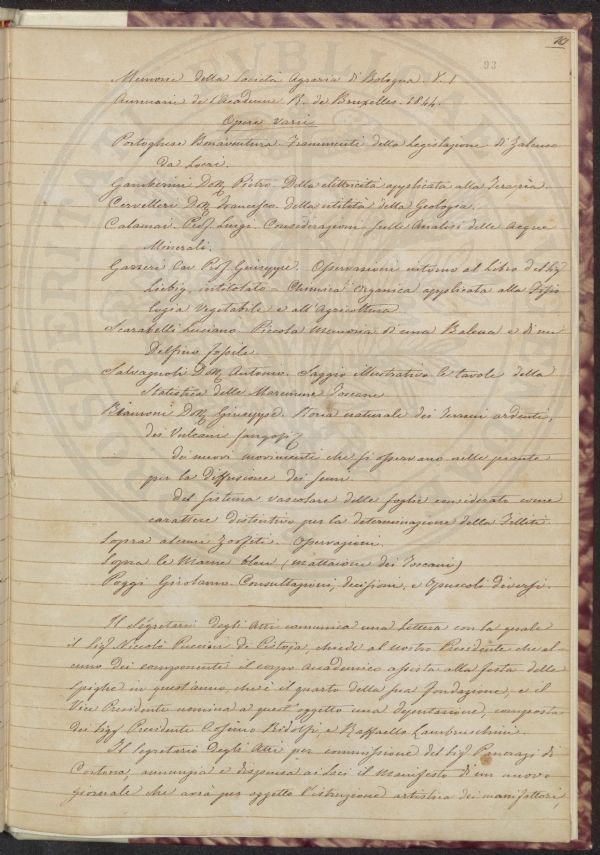 93
Memorie della Società Agraria di Bologna. V. 1
Annuaire de l'Academie R. de Bruxelles. 1844.
Opere varie
Portoghese Bonaventura. Frammenti della Legislazione di Zaleuco
Da Locri.
Gamberini Dott. Pietro. Della elettricità applicata alla Terapia.
Cervelleri Dott. Francesco. Della utilità della Geologia.
Calamai. Prof. Luigi. Considerazioni sulle Analisi delle Acque
Minerali.
Gazzeri Cav. Prof. Giuseppe. Osservazioni intorno al Libro del Sig.
Liebig intitolato – Chimica Organica applicata alla Fisio
logia Vegetabile e all'Agricoltura
Scarabelli Luciano. Piccola memoria di una Balena e di un
Delfino fossile
Salvagnoli Dott. Antonio. Saggio Illustrativo le tavole della
Statistica delle Maremme Toscane
Bianconi Dott. Giuseppe. Storia naturale dei Terreni ardenti,
dei Vulcani fangosi
dei nuovi movimenti che si osservano nelle piante
per la diffusione dei semi.
Del sistema vascolare delle foglie considerato come
carattere distintivo per la determinazione della Filliti.
Sopra alcuni Zoofiti. Osservazioni.
Sopra le Marne bleu (mattaione dei Toscani)
Poggi Girolamo. Consultazioni, decisioni, e Opuscoli diversi.
Il Segretario degli Atti comunica una Lettera con la quale
il Sig. Niccolò Puccini di Pistoja, chiede al nostro Presidente che al-
cuno dei componenti il corpo Accademico assista alla festa delle
Spighe in quest'anno, che è il quarto della sua fondazione, e il
Vice Presidente nomina a quest'oggetto una deputazione, composta
dei Sigg. Presidente Cosimo Ridolfi, e Raffaello Lambruschini.
Il Segretario degli Atti per commissione del Sig. Pancrazi di
Cortona, annunzia e dispensa ai Soci il Manifesto di un nuovo
giornale che avrà per oggetto l'istruzione artistica dei manifattori,